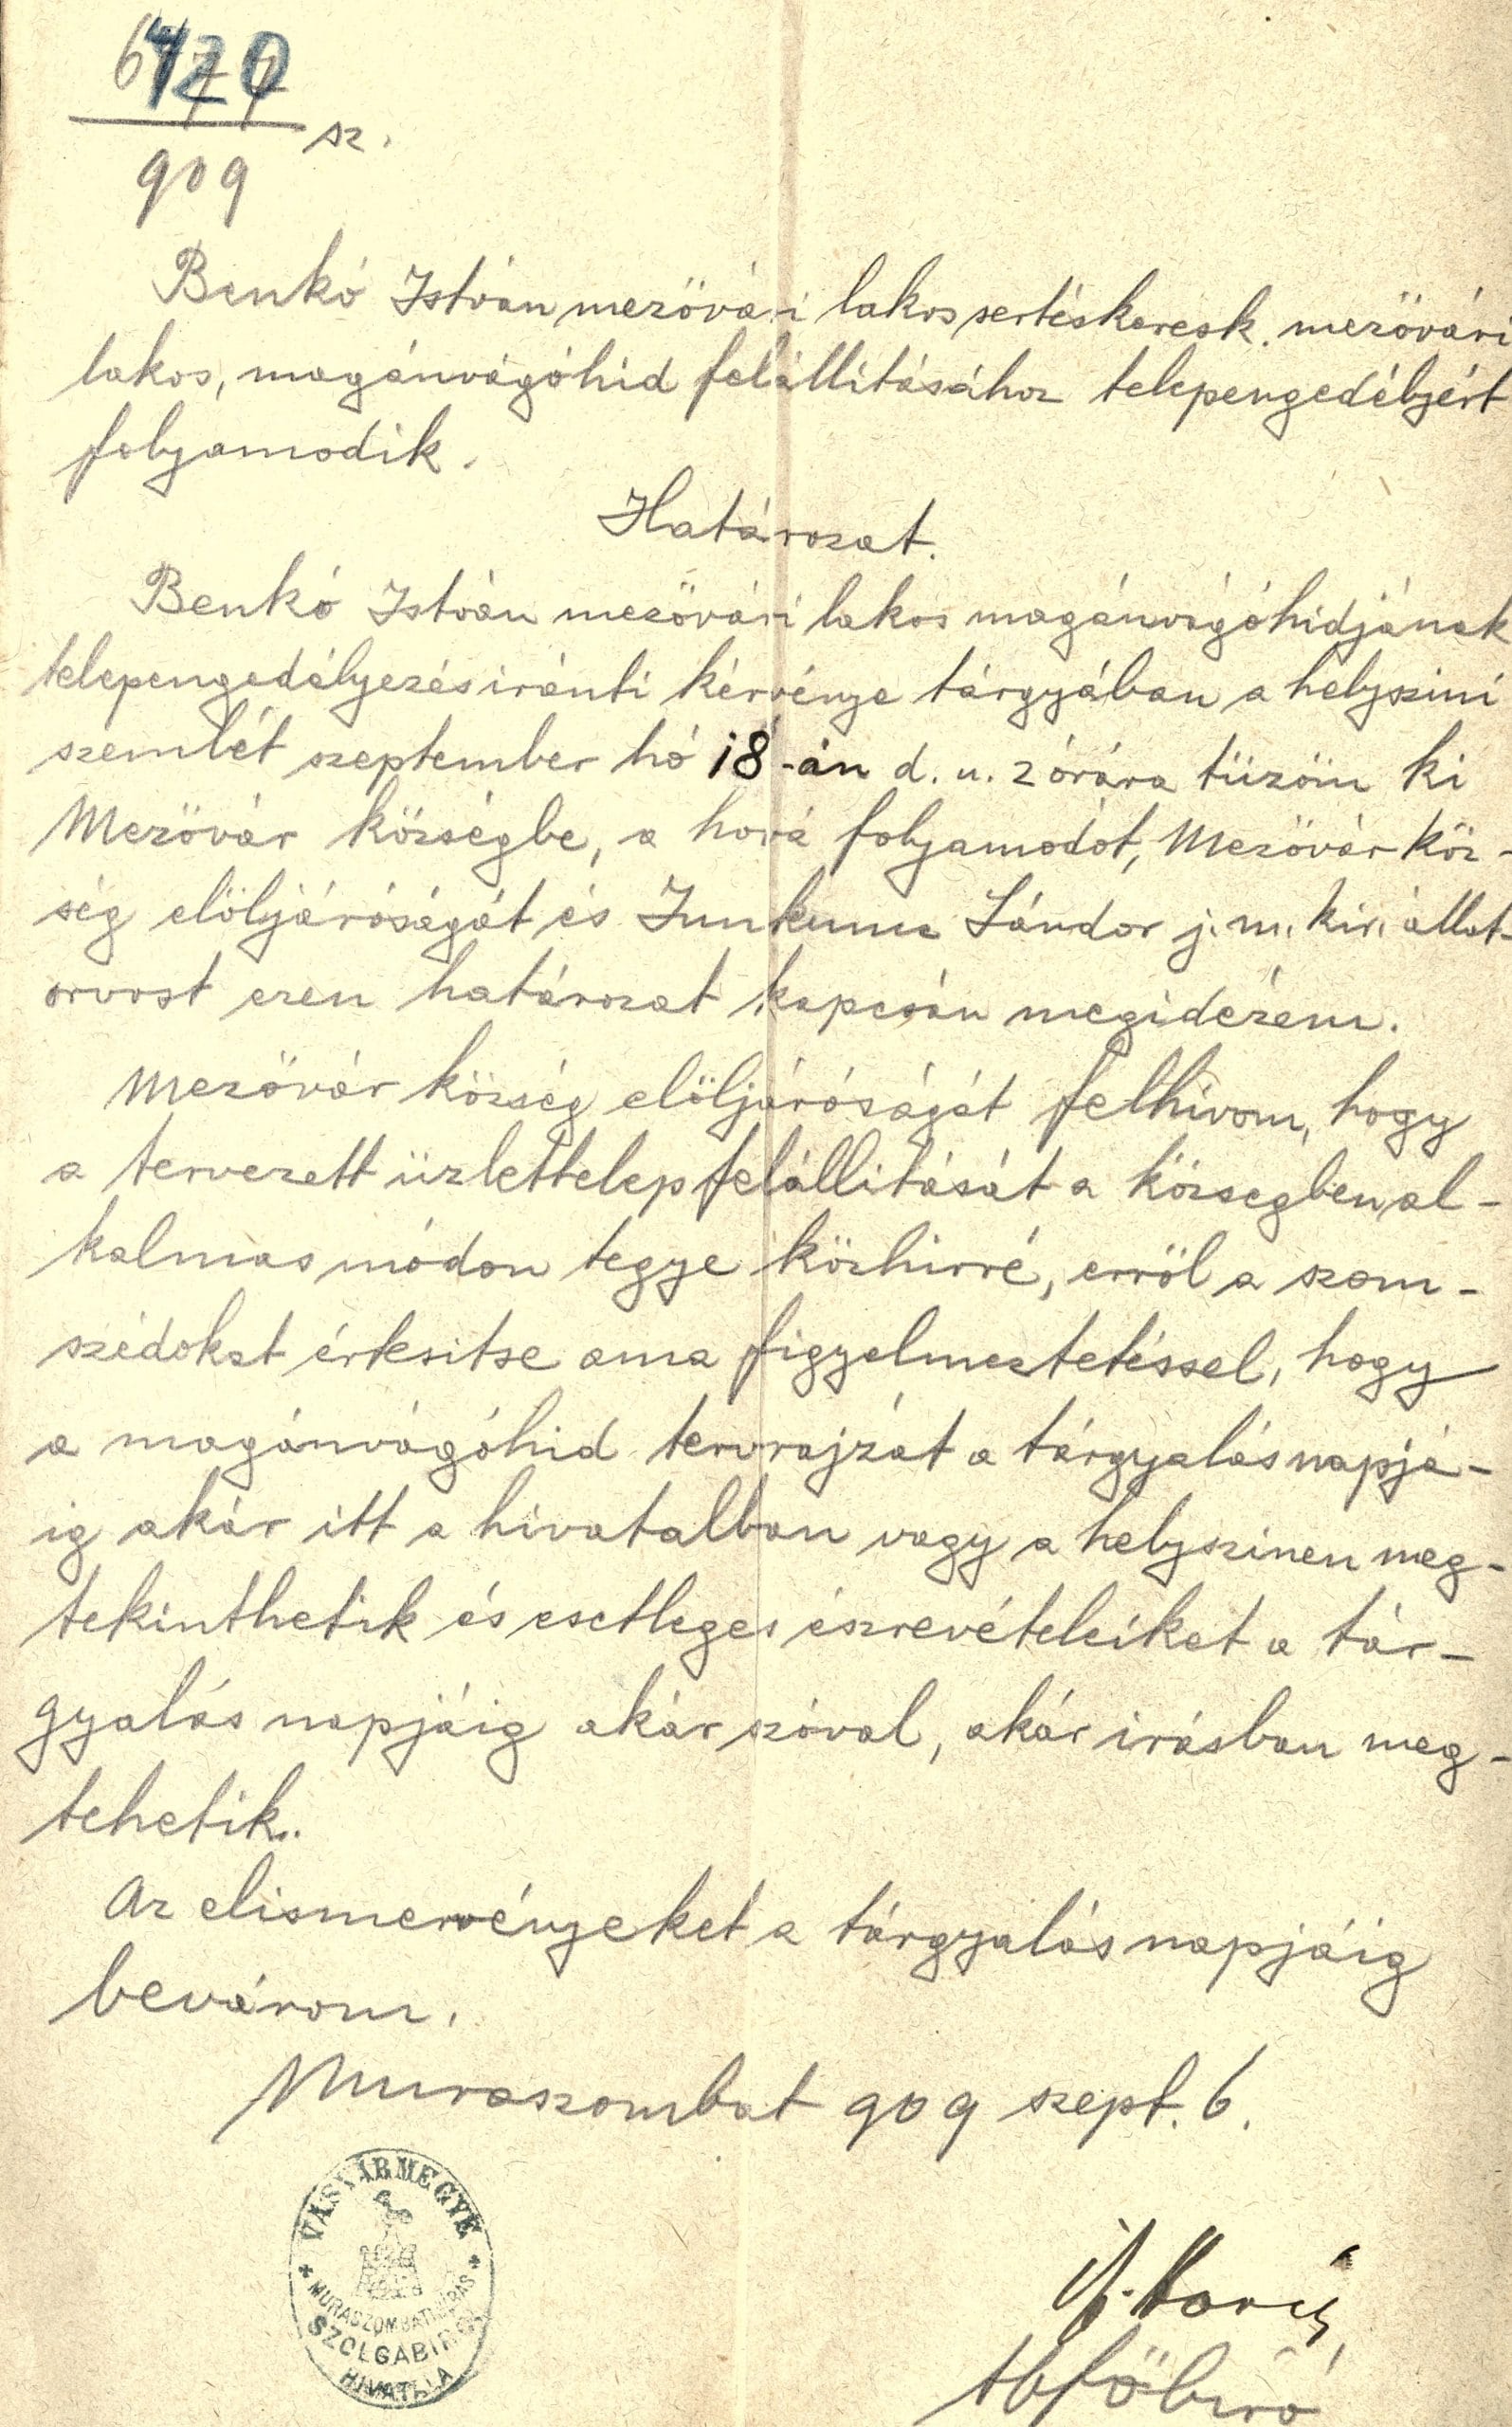 420
909 sz.
Benkó István mezővári lakos sertéskeresk. mezővári
lakos, magánvágóhid felállitásához telepengedélyért
folyamodik.
Határozat.
Benkó István mezővári lakos magánvágóhidjának
telepengedélyezés iránti kérvénye tárgyában a helyszini
szemlét szeptember hó 18-án d. u. 2 órára tüzöm ki
Mezővár községbe, a hová folyamodót, Mezővár köz-
ség elöljáróságát és Junkuncz Sándor j. m. kir. állat-
orvost ezen határozat kapcsán megidézem.
Mezővár község elöljáróságát felhivom, hogy
a tervezett üzlettelep felállitását a községben al-
kalmas módon tegye közhirré, erröl a szom-
szédokat értesitse ama figyelmeztetéssel, hogy
a magánvágóhid tervrajzát a tárgyalás napjá-
ig akár itt a hivatalban vagy a helyszinen meg-
tekinthetik és esetleges észrevételeiket a tár-
gyalás napjáig akár szóval, akár irásban meg-
tehetik.
Az elismervényeket a tárgyalás napjáig
bevárom.
Muraszombat 909 szept. 6.
VASVÁRMEGYE
MURASZOMBATI JÁRÁS
SZOLGABIRÓ
HIVATALA
tbföbiró